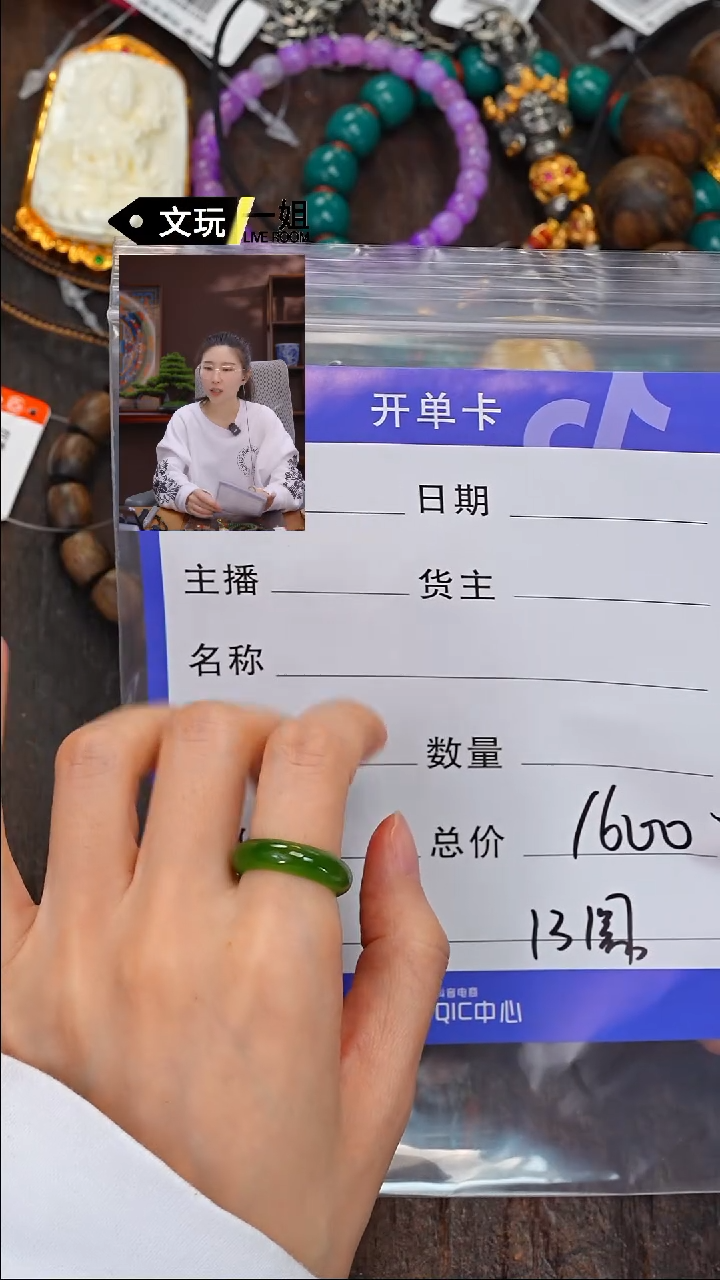 文玩 一姐
LIVE ROOM
开单卡
日期
主播 货主
名称
数量
总价 1600
13圈
抖音电商
QIC中心